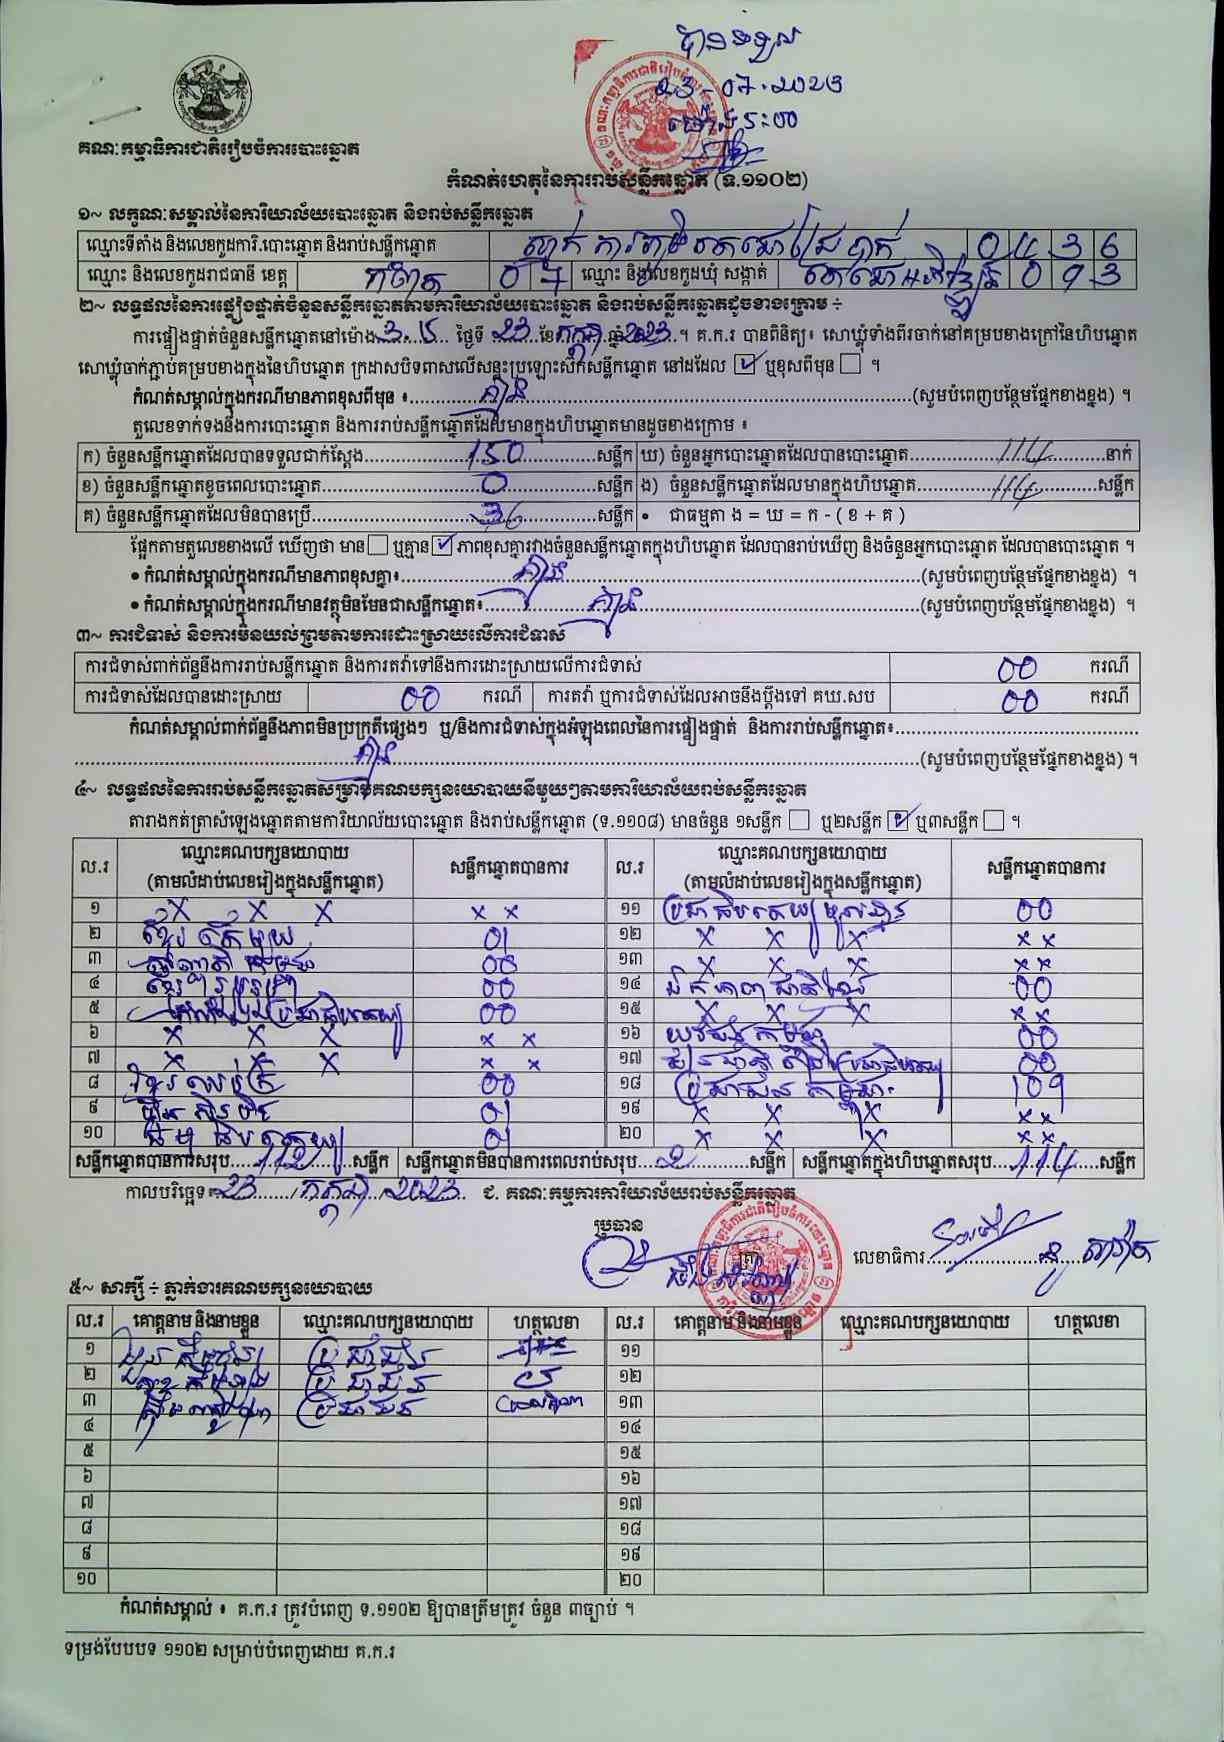 បានទទួល
23-07-2023
គណៈកម្មាធិការជាតិរៀបចំការបោះឆ្នោត
កំណត់ហេតុនៃការរាប់សន្លឹកឆ្នោត (ទ.១១០២)
១~ លក្ខណៈសម្គាល់នៃការិយាល័យបោះឆ្នោត និងរាប់សន្លឹកឆ្នោត
ឈ្មោះទីតាំង និងលេខកូដការិ.បោះឆ្នោត និងរាប់សន្លឹកឆ្នោត 0436
ឈ្មោះ និងលេខកូដរាជធានី ខេត្ត កំពត 07 ឈ្មោះ និងលេខកូដឃុំ សង្កាត់ 093
២~ លទ្ធផលនៃការផ្ទៀងផ្ទាត់ចំនួនសន្លឹកឆ្នោតតាមការិយាល័យបោះឆ្នោត និងរាប់សន្លឹកឆ្នោតដូចខាងក្រោម ÷
ការផ្ទៀងផ្ទាត់ចំនួនសន្លឹកឆ្នោតនៅម៉ោង ថ្ងៃទី 23 ខែ កក្កដា ឆ្នាំ 2023 ។ គ.ក.រ បានពិនិត្យ៖ សោឃ្លុំទាំងពីរចាក់នៅគម្របខាងក្រៅនៃហិបឆ្នោត
សោឃ្លុំចាក់ភ្ជាប់គម្របខាងក្នុងនៃហិបឆ្នោត ក្រដាសបិទពាសលើសន្ទះប្រឡោះស៊កសន្លឹកឆ្នោត នៅដដែល ✓ ឬខុសពីមុន ។
កំណត់សម្គាល់ក្នុងករណីមានភាពខុសពីមុន ៖ គ្មាន (សូមបំពេញបន្ថែមផ្នែកខាងខ្នង) ។
តួលេខទាក់ទងនឹងការបោះឆ្នោត និងការរាប់សន្លឹកឆ្នោតដែលមានក្នុងហិបឆ្នោតមានដូចខាងក្រោម ៖
ក) ចំនួនសន្លឹកឆ្នោតដែលបានទទួលជាក់ស្តែង 150 សន្លឹក ឃ) ចំនួនអ្នកបោះឆ្នោតដែលបានបោះឆ្នោត 114 នាក់
ខ) ចំនួនសន្លឹកឆ្នោតខូចពេលបោះឆ្នោត 0 សន្លឹក ង) ចំនួនសន្លឹកឆ្នោតដែលមានក្នុងហិបឆ្នោត 114 សន្លឹក
គ) ចំនួនសន្លឹកឆ្នោតដែលមិនបានប្រើ 36 សន្លឹក • ជាធម្មតា ង = ឃ = ក - ( ខ + គ )
ផ្អែកតាមតួលេខខាងលើ ឃើញថា មាន ឬគ្មាន ✓ ភាពខុសគ្នារវាងចំនួនសន្លឹកឆ្នោតក្នុងហិបឆ្នោត ដែលបានរាប់ឃើញ និងចំនួនអ្នកបោះឆ្នោត ដែលបានបោះឆ្នោត ។
• កំណត់សម្គាល់ក្នុងករណីមានភាពខុសគ្នា៖ គ្មាន (សូមបំពេញបន្ថែមផ្នែកខាងខ្នង) ។
• កំណត់សម្គាល់ក្នុងករណីមានវត្ថុមិនមែនជាសន្លឹកឆ្នោត៖ គ្មាន (សូមបំពេញបន្ថែមផ្នែកខាងខ្នង) ។
៣~ ការជំទាស់ និងការមិនយល់ព្រមតាមការដោះស្រាយលើការជំទាស់
ការជំទាស់ពាក់ព័ន្ធនឹងការរាប់សន្លឹកឆ្នោត និងការតវ៉ាទៅនឹងការដោះស្រាយលើការជំទាស់ 00 ករណី
ការជំទាស់ដែលបានដោះស្រាយ 00 ករណី ការតវ៉ា ឬការជំទាស់ដែលអាចនឹងប្តឹងទៅ គឃ.សប 00 ករណី
កំណត់សម្គាល់ពាក់ព័ន្ធនឹងភាពមិនប្រក្រតីផ្សេងៗ ឬ/និងការជំទាស់ក្នុងអំឡុងពេលនៃការផ្ទៀងផ្ទាត់ និងការរាប់សន្លឹកឆ្នោត៖
គ្មាន (សូមបំពេញបន្ថែមផ្នែកខាងខ្នង) ។
៤~ លទ្ធផលនៃការរាប់សន្លឹកឆ្នោតសម្រាប់គណបក្សនយោបាយនីមួយៗតាមការិយាល័យរាប់សន្លឹកឆ្នោត
តារាងកត់ត្រាសំឡេងឆ្នោតតាមការិយាល័យបោះឆ្នោត និងរាប់សន្លឹកឆ្នោត (ទ.១១០៨) មានចំនួន ១សន្លឹក ឬ២សន្លឹក ✓ ឬ៣សន្លឹក ។
ល.រ ឈ្មោះគណបក្សនយោបាយ (តាមលំដាប់លេខរៀងក្នុងសន្លឹកឆ្នោត) សន្លឹកឆ្នោតបានការ ល.រ ឈ្មោះគណបក្សនយោបាយ (តាមលំដាប់លេខរៀងក្នុងសន្លឹកឆ្នោត) សន្លឹកឆ្នោតបានការ
១ x x x x x ១១ ប្រជាធិបតេយ្យមូលដ្ឋាន 00
២ ខ្មែរតែមួយ 01 ១២ x x x x x
៣ 00 ១៣ x x x x x
៤ 00 ១៤ 00
៥ 00 ១៥ x x x x x
៦ x x x x x ១៦ យុវជនកម្ពុជា 00
៧ x x x x x ១៧ 00
៨ 00 ១៨ ប្រជាជនកម្ពុជា 109
៩ 01 ១៩ x x x x x
១០ 01 ២០ x x x x x
សន្លឹកឆ្នោតបានការសរុប 112 សន្លឹក សន្លឹកឆ្នោតមិនបានការពេលរាប់សរុប 2 សន្លឹក សន្លឹកឆ្នោតក្នុងហិបឆ្នោតសរុប 114 សន្លឹក
កាលបរិច្ឆេទ៖ 23 / កក្កដា / 2023 ជ. គណៈកម្មការការិយាល័យរាប់សន្លឹកឆ្នោត
ប្រធាន
លេខាធិការ
៥~ សាក្សី ÷ ភ្នាក់ងារគណបក្សនយោបាយ
ល.រ គោត្តនាម និងនាមខ្លួន ឈ្មោះគណបក្សនយោបាយ ហត្ថលេខា ល.រ គោត្តនាម និងនាមខ្លួន ឈ្មោះគណបក្សនយោបាយ ហត្ថលេខា
១ ប្រជាជន ១១
២ ប្រជាជន ១២
៣ ប្រជាជន ១៣
៤ ១៤
៥ ១៥
៦ ១៦
៧ ១៧
៨ ១៨
៩ ១៩
១០ ២០
កំណត់សម្គាល់ ៖ គ.ក.រ ត្រូវបំពេញ ទ.១១០២ ឱ្យបានត្រឹមត្រូវ ចំនួន ៣ច្បាប់ ។
ទម្រង់បែបបទ ១១០២ សម្រាប់បំពេញដោយ គ.ក.រ